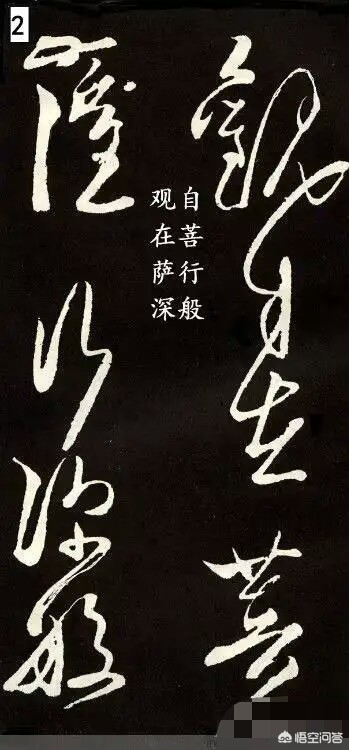 2
觀自在菩
薩行深般
观自
在菩
萨行
深般
悟空问答